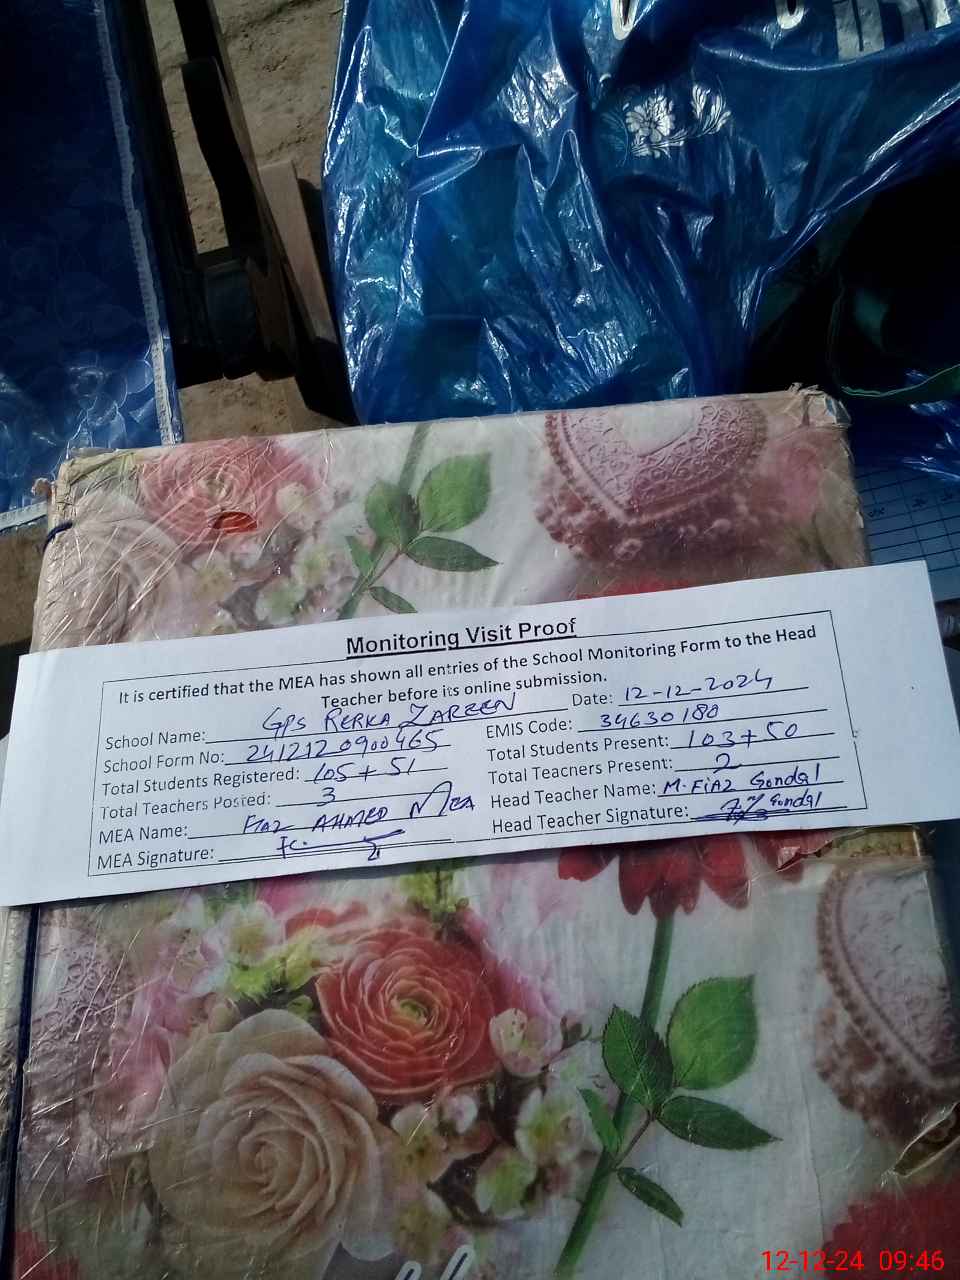 Monitoring Visit Proof
It is certified that the MEA has shown all entries of the School Monitoring Form to the Head
Teacher before its online submission.
School Name: GPS RERKA ZAREEN Date: 12-12-2024
School Form No: 2412120900465 EMIS Code: 34630180
Total Students Registered: 105 + 51 Total Students Present: 103 + 50
Total Teachers Posted: 3 Total Teachers Present: 2
MEA Name: FIAZ AHMED MEA Head Teacher Name: M. FiAZ Gondal
MEA Signature: Head Teacher Signature: Gondal
12-12-24 09:46